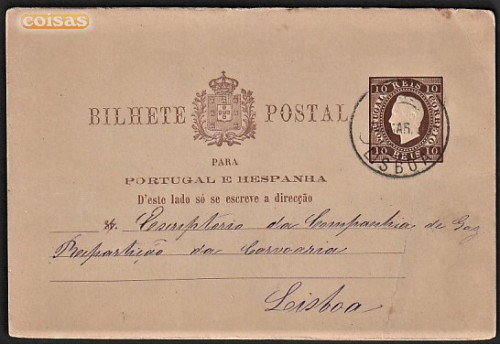 coisas
BILHETE POSTAL
10 REIS 10
PORTUGAL CORREIO
10 REIS 10
MAR.
LISBOA
PARA
PORTUGAL E HESPANHA
D'este lado só se escreve a direcção
Escreptorio da Companhia de Gaz
Repartição da Carvoaria
Lisboa